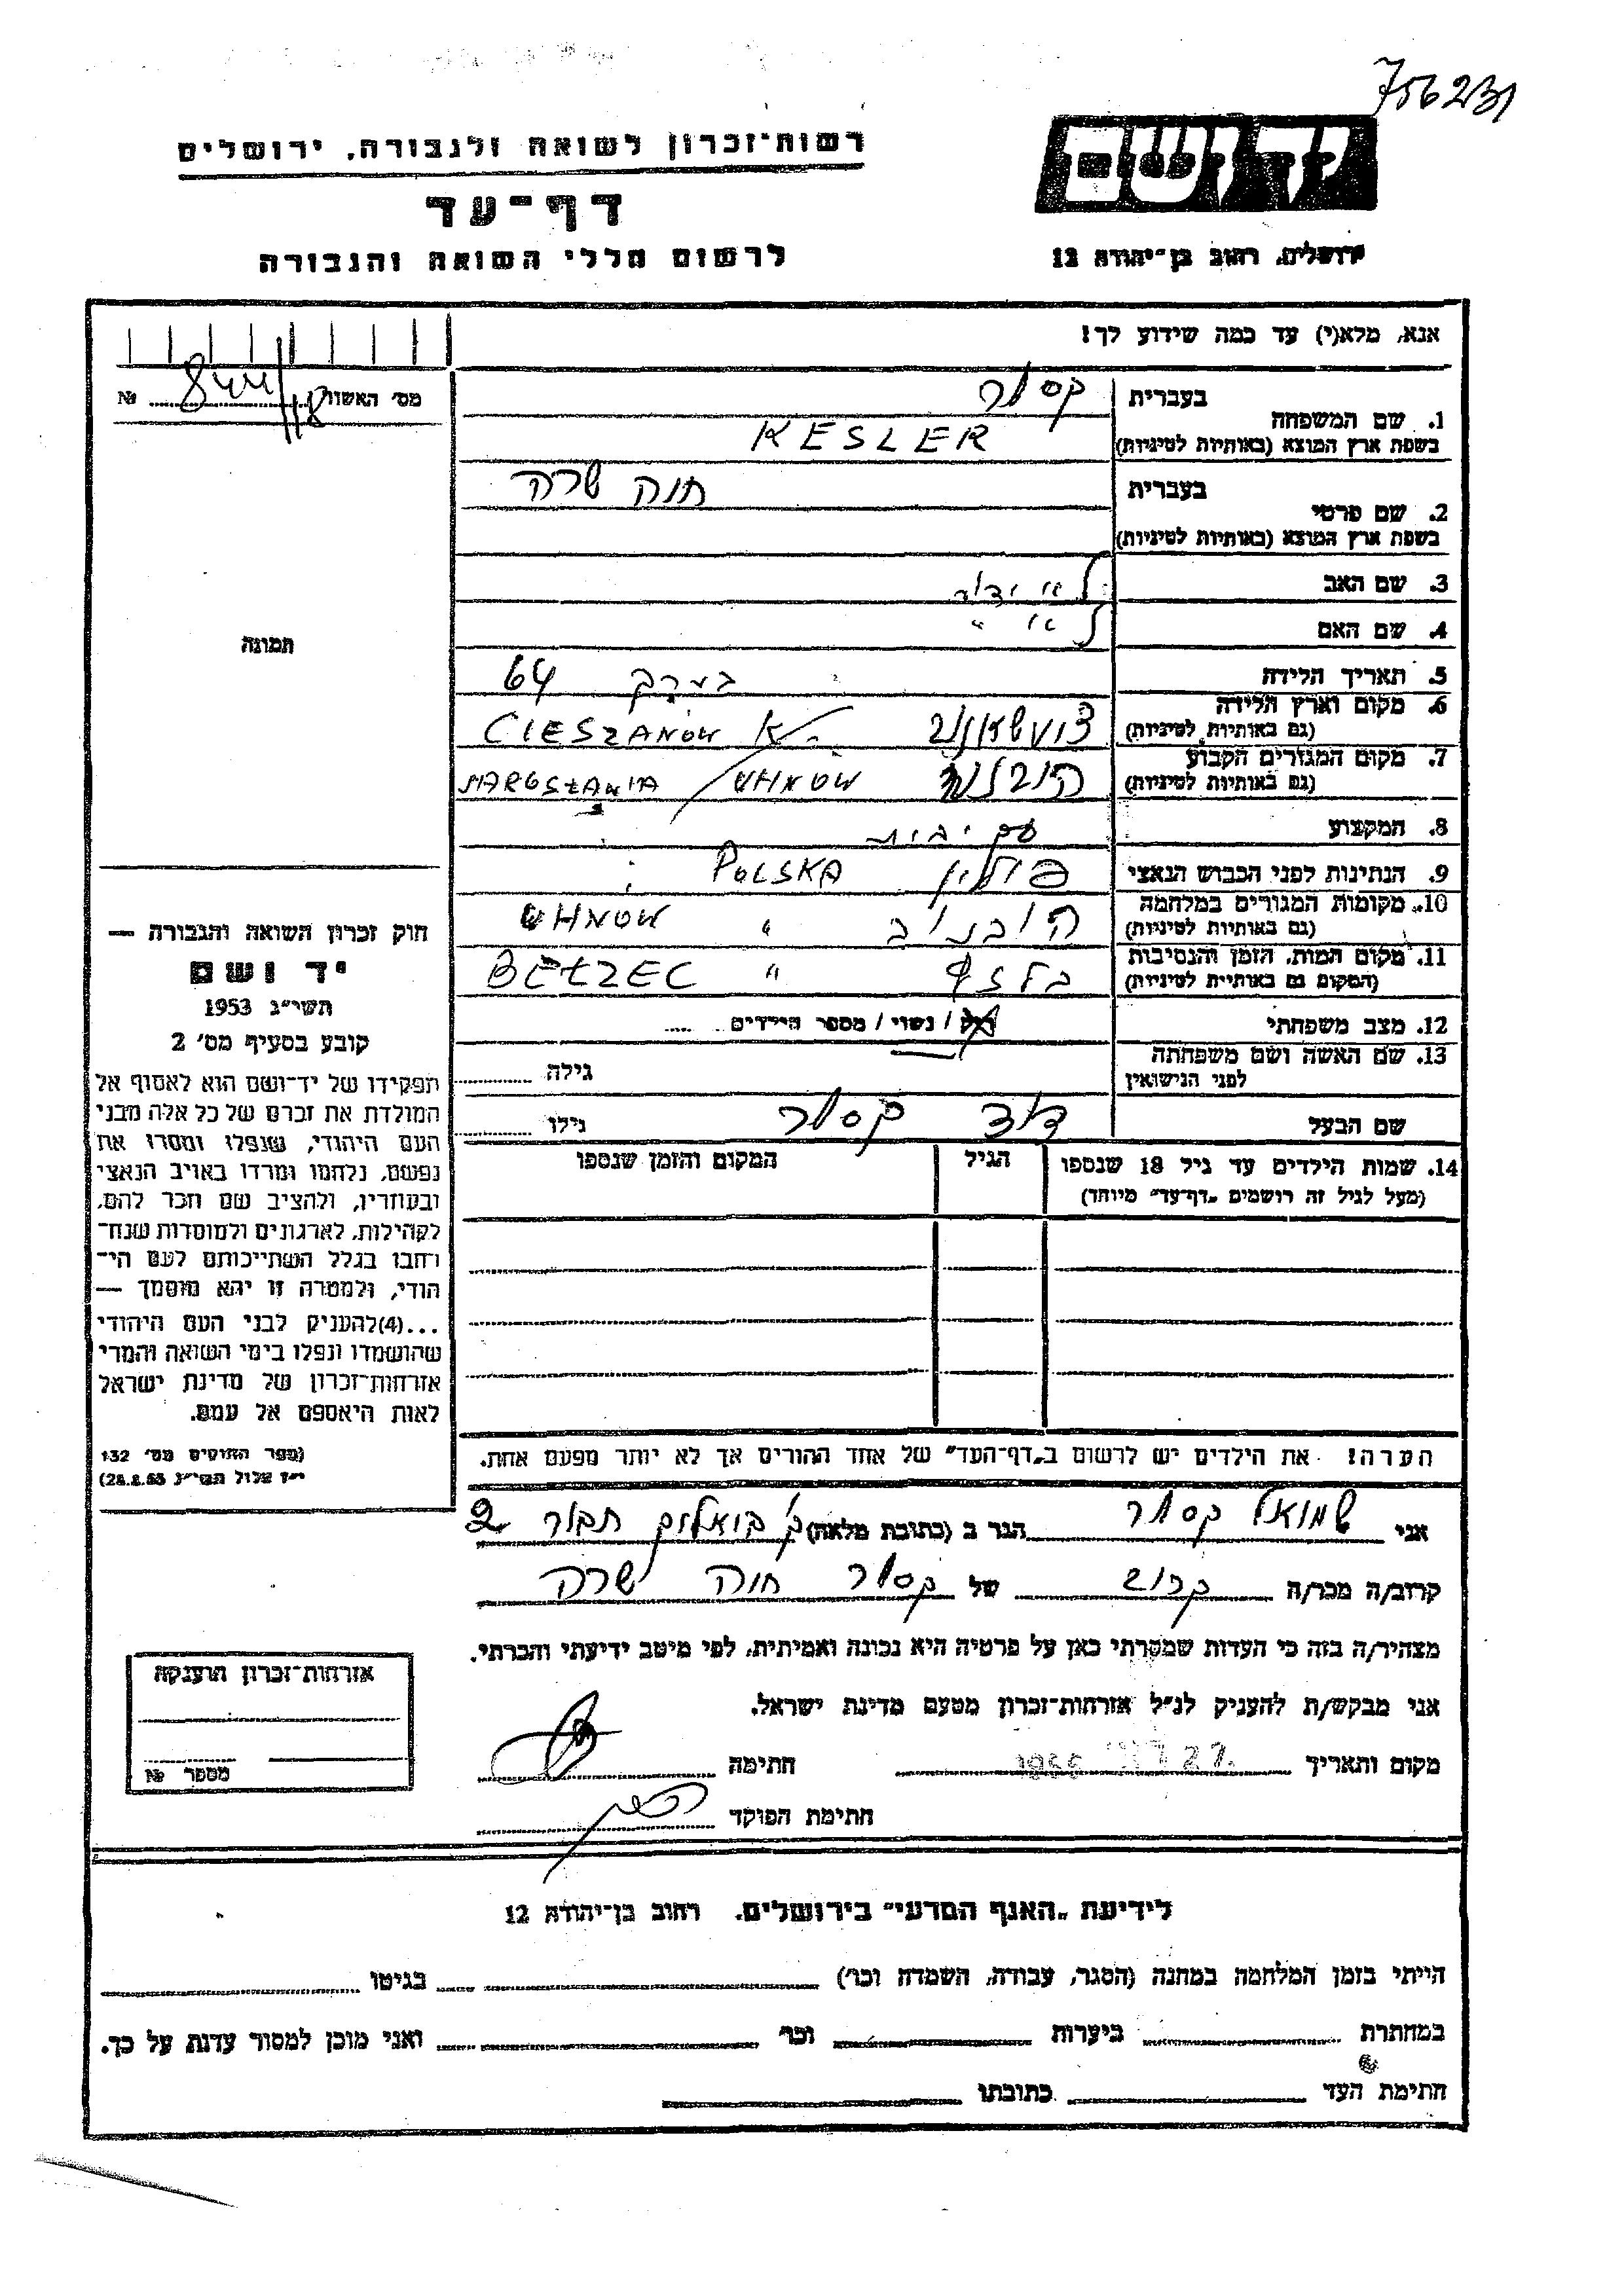 756231
רשות־זכרון לשואה ולגבורה, ירושלים
דף־עד
לרשום חללי השואה והגבורה
יד ושם
ירושלים, רחוב בן־יהודה 12
אנא, מלא(י) עד כמה שידוע לך!
מס' האשות
№ 844/18
תמונה
1. שם המשפחה
בעברית קסלר
בשפת ארץ המוצא (באותיות לטיניות) KESLER
2. שם פרטי
בעברית חוה שרה
בשפת ארץ המוצא (באותיות לטיניות)
3. שם האב לא ידוע
4. שם האם לא "
5. תאריך הלידה בערך 64
6. מקום וארץ הלידה CIESZANOW
(גם באותיות לטיניות)
7. מקום המגורים הקבוע UHNOW
(גם באותיות לטיניות)
8. המקצוע עקרת בית
9. הנתינות לפני הכבוש הנאצי פולין POLSKA
10. מקומות המגורים במלחמה הובנוב " UHNOW
(גם באותיות לטיניות)
11. מקום המות, הזמן והנסיבות בלזץ " BEŁZEC
(המקום גם באותיות לטיניות)
12. מצב משפחתי רווק / נשוי / מספר הילדים
13. שם האשה ושם משפחתה
לפני הנישואין גילה
שם הבעל דוד קסלר גילו
14. שמות הילדים עד גיל 18 שנספו הגיל המקום והזמן שנספו
(מעל לגיל זה רושמים "דף־עד" מיוחד)
הערה! את הילדים יש לרשום ב"דף־העד" של אחד ההורים אך לא יותר מפעם אחת.
חוק זכרון השואה והגבורה —
יד ושם
תשי"ג 1953
קובע בסעיף מס' 2
תפקידו של יד־ושם הוא לאסוף אל
המולדת את זכרם של כל אלה מבני
העם היהודי, שנפלו ומסרו את
נפשם, נלחמו ומרדו באויב הנאצי
ובעוזריו, ולהציב שם וזכר להם,
לקהילות, לארגונים ולמוסדות שנח־
רבו בגלל השתייכותם לעם הי־
הודי, ולמטרה זו יהא מוסמך —
...(4)להעניק לבני העם היהודי
שהושמדו ונפלו בימי השואה והמרי
אזרחות־זכרון של מדינת ישראל
לאות היאספם אל עמם.
(ספר החוקים מס' 132
י"ז אלול תשי"ג 28.8.53)
אני שמואל קסלר הגר ב (כתובת מלאה) תבור
קרוב/ה מכר/ה קרוב של קסלר חוה שרה
מצהיר/ה בזה כי העדות שמסרתי כאן על פרטיה היא נכונה ואמיתית, לפי מיטב ידיעתי והכרתי.
אני מבקש/ת להעניק לנ"ל אזרחות־זכרון מטעם מדינת ישראל.
מקום ותאריך חתימה
חתימת הפוקד
אזרחות־זכרון הוענקה
מספר №
לידיעת "האגף המדעי" בירושלים, רחוב בן־יהודה 12
הייתי בזמן המלחמה במחנה (הסגר, עבודה, השמדה וכו') בגיטו
במחתרת ביערות וכו' ואני מוכן למסור עדות על כך.
חתימת העד כתובתו